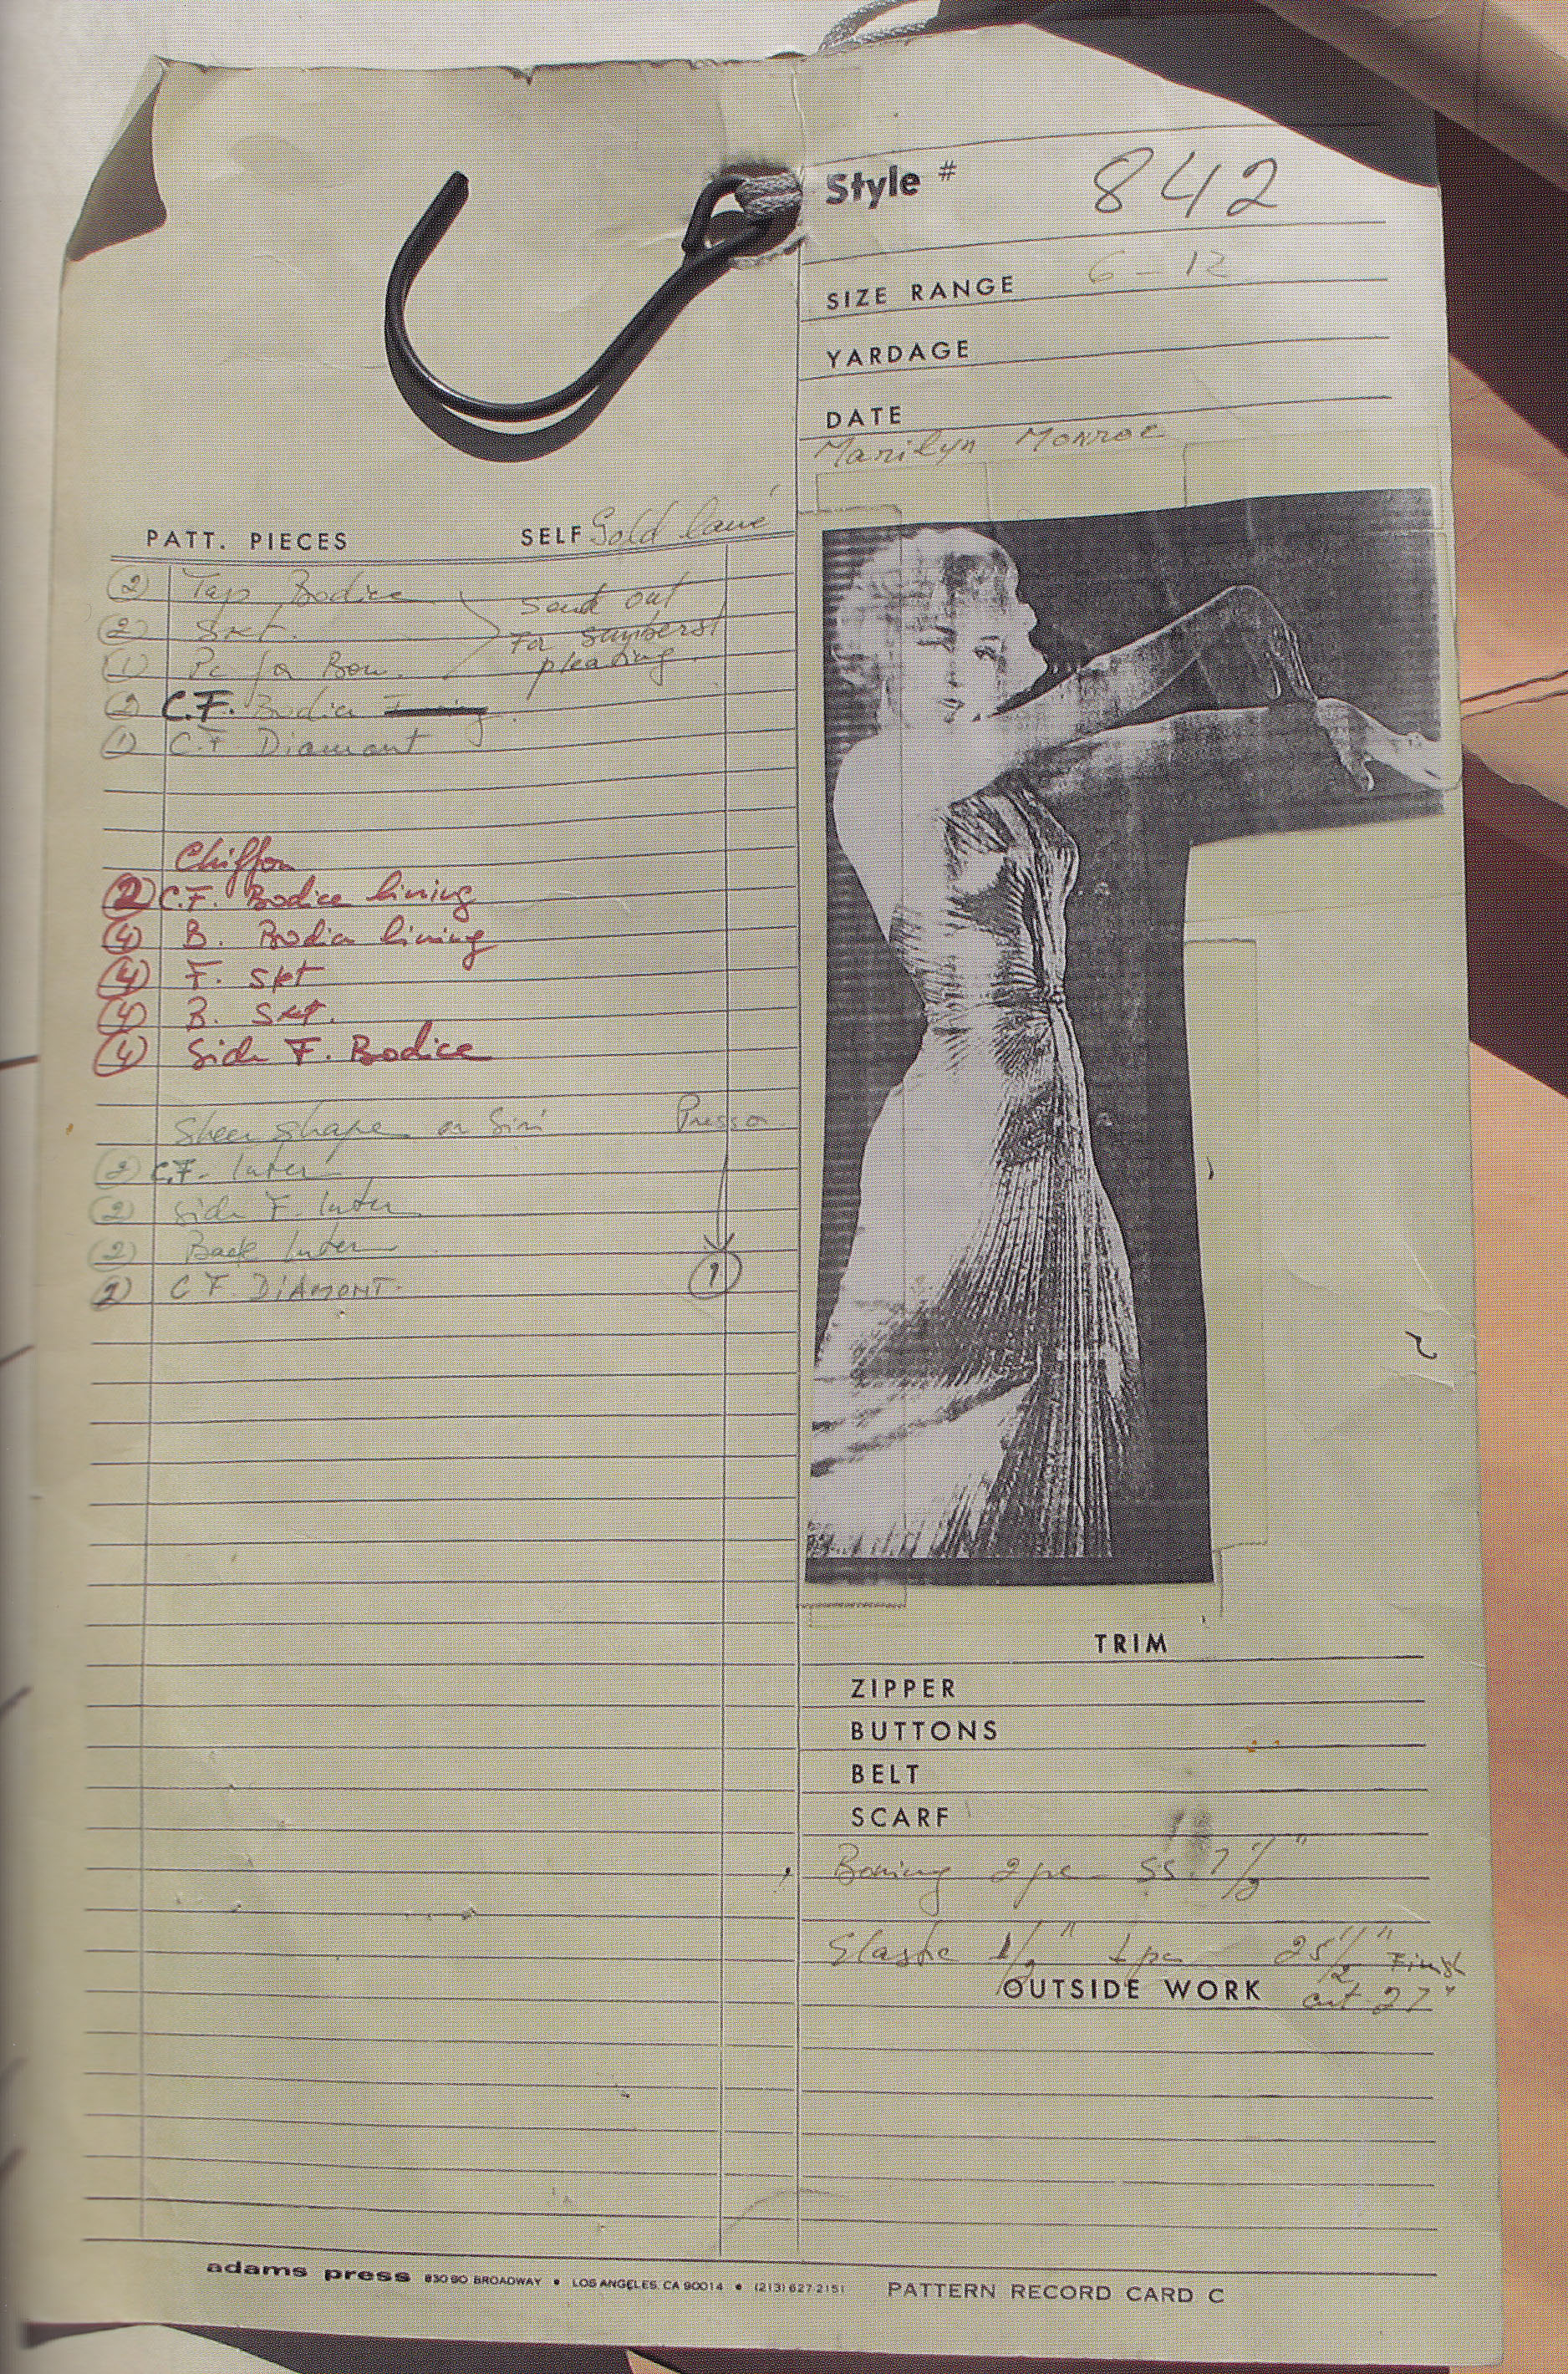 Style # 842
SIZE RANGE 6 - 12
YARDAGE
DATE
Marilyn Monroe
PATT. PIECES SELF Gold lamé
(2) Top Bodice
(2) Skt.
(1) Pc for Bow.
Send out
For sunberst
pleating
(2) C.F. Bodice
(1) C.F. Diamont
Chiffon
(2) C.F. Bodice lining
(4) B. Bodice lining
(4) F. Skt
(4) B. Skt.
(4) Side F. Bodice
Sheer shape or Siri Presso
(2) C.F. Inter
(2) Side F. Inter
(2) Back Inter
(2) C F. DIAMONT. (1)
TRIM
ZIPPER
BUTTONS
BELT
SCARF
Boning 2 pc - SS. 7 1/2"
Elastic 1/2" 1 pc 25 1/2" Finish
OUTSIDE WORK cut 27"
adams press 830 SO BROADWAY • LOS ANGELES, CA 90014 • (213) 627-2151 PATTERN RECORD CARD C